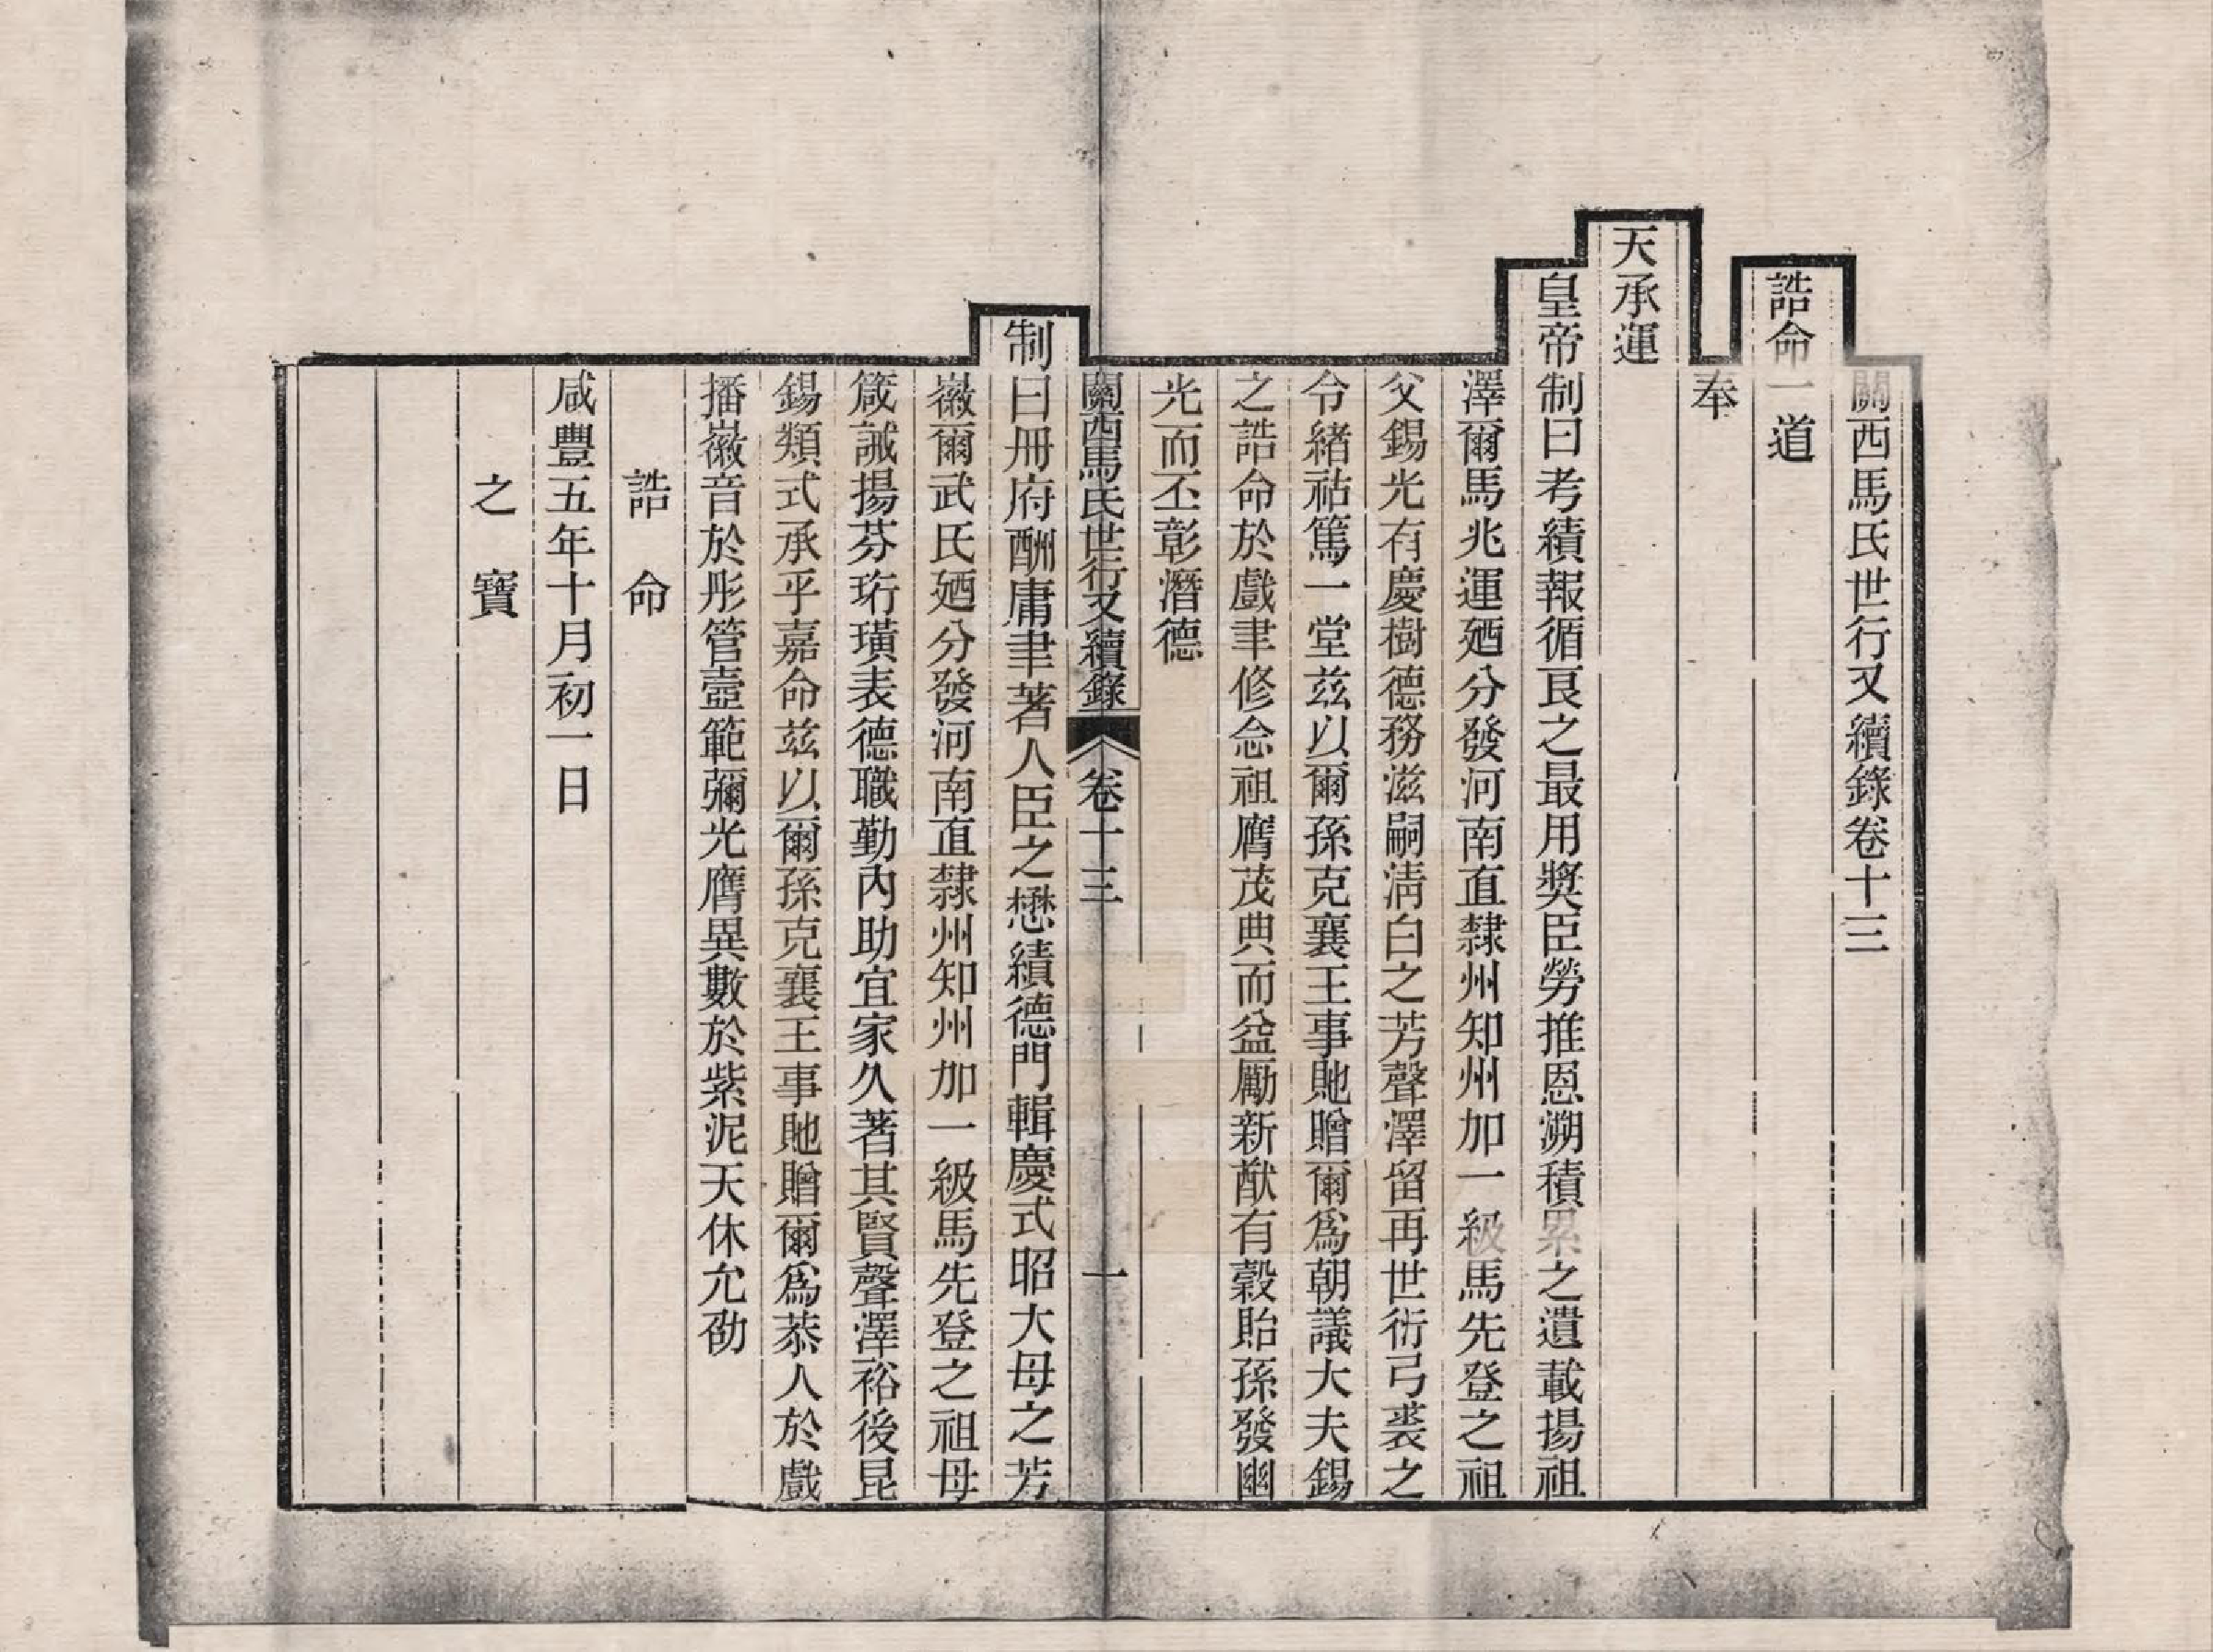 關西馬氏世行又續錄卷十三
誥命一道
奉
天承運
皇帝制曰考績報循良之最用獎臣勞推恩溯積累之遺載揚祖
澤爾馬兆運廼分發河南直隸州知州加一級馬先登之祖
父錫光有慶樹德務滋嗣淸白之芳聲澤留再世衍弓裘之
令緒祜篤一堂茲以爾孫克襄王事貤贈爾爲朝議大夫錫
之誥命於戲聿修念祖膺茂典而益勵新猷有穀貽孫發幽
光而丕彰潛德
關西馬氏世行又續錄 卷十三 一
制曰冊府酬庸聿著人臣之懋績德門輯慶式昭大母之芳
徽爾武氏廼分發河南直隸州知州加一級馬先登之祖母
箴誡揚芬珩璜表德職勤內助宜家久著其賢聲澤裕後昆
錫類式承乎嘉命茲以爾孫克襄王事貤贈爾爲恭人於戲
播徽音於彤管壼範彌光膺異數於紫泥天休允劭
誥命
咸豐五年十月初一日
之寶